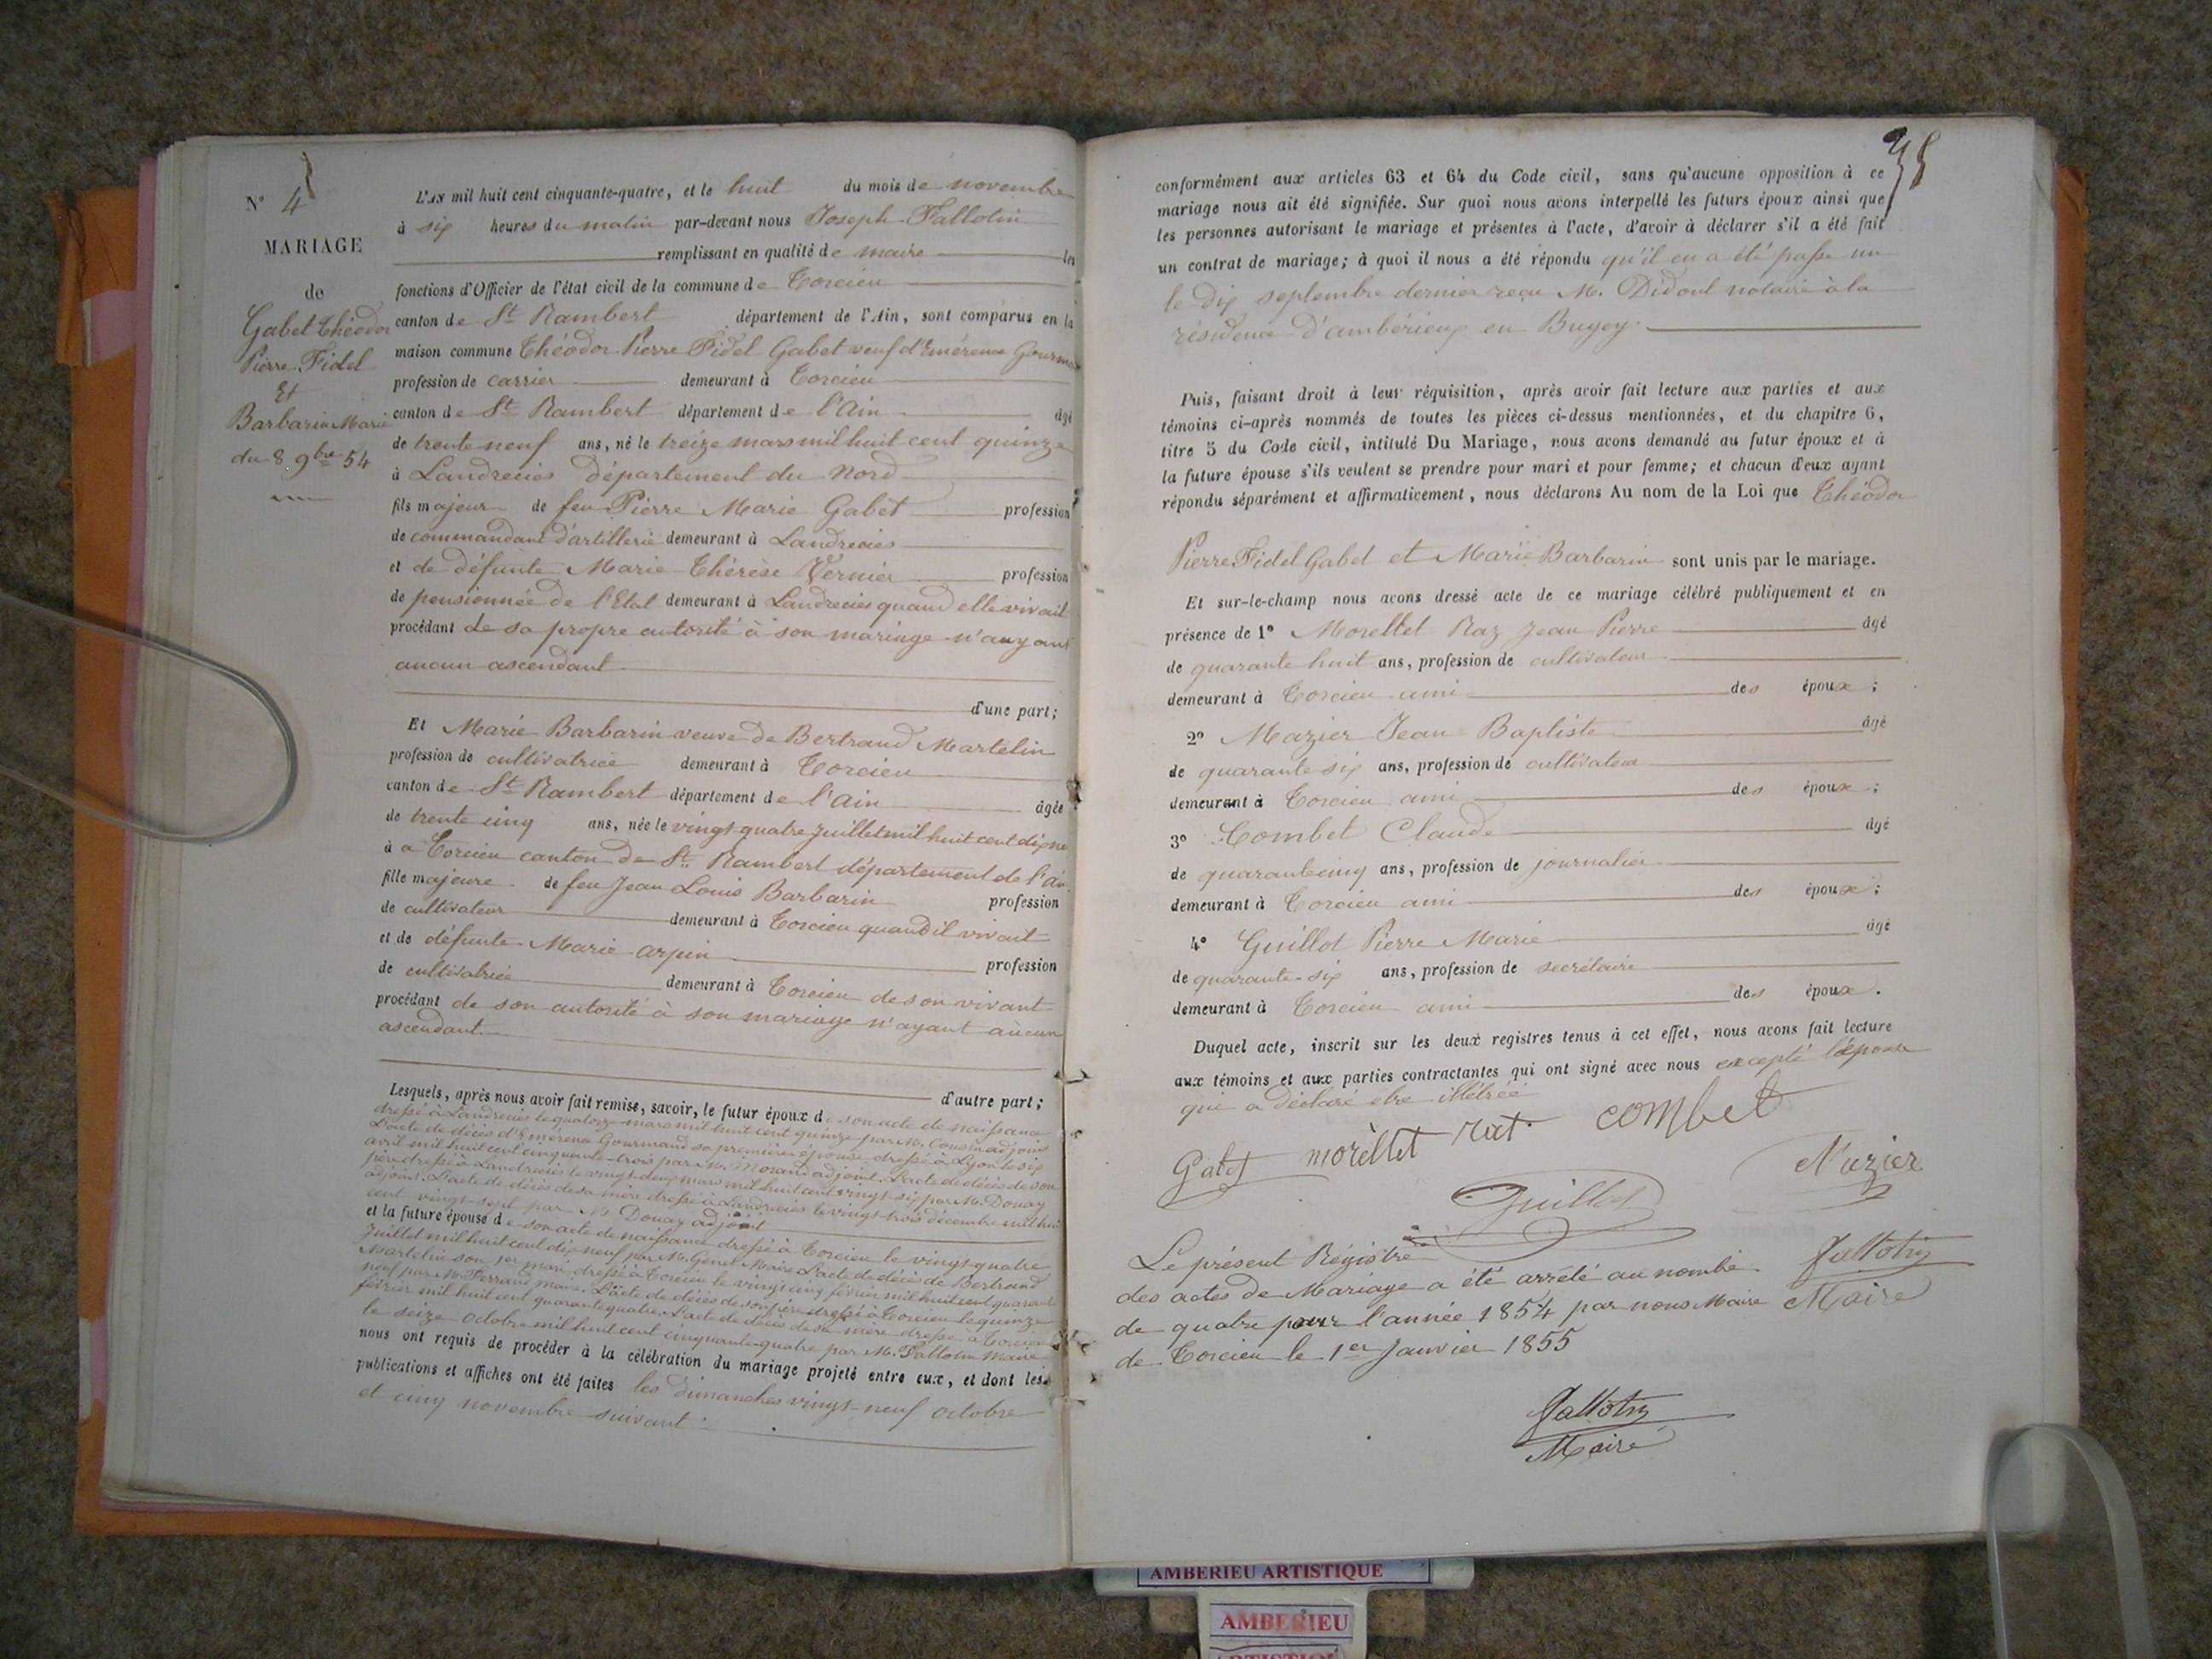 N° 4
MARIAGE
de
Gabet Théodor
Pierre Fidel
Et
Barbarin Marie
du 8 9bre 54
L'AN mil huit cent cinquante-quatre, et le huit du mois de novembre
à six heures du matin par-devant nous Joseph Fallotin
remplissant en qualité de maire les
fonctions d'Officier de l'état civil de la commune de Torcieu
canton de St Rambert département de l'Ain, sont comparus en la
maison commune Théodor Pierre Fidel Gabet veuf d'Emérence
profession de carrier demeurant à Torcieu
canton de St Rambert département de l'Ain âgé
de trente neuf ans, né le treize mars mil huit cent quinze
à Landrecies département du Nord
fils majeur de feu Pierre Marie Gabet profession
de commandant d'artillerie demeurant à Landrecies
et de défunte Marie Thérèse Vernier profession
de pensionnée de l'Etat demeurant à Landrecies quand elle vivait
procédant de sa propre autorité à son mariage n'ayant
aucun ascendant
d'une part;
Et Marie Barbarin veuve de Bertrand Martelin
profession de cultivatrice demeurant à Torcieu
canton de St Rambert département de l'Ain âgée
de trente cinq ans, née le vingt quatre juillet mil huit cent
à a Torcieu canton de St Rambert département de l'Ain
fille majeure de feu Jean Louis Barbarin profession
de cultivateur demeurant à Torcieu quand il vivait
et de défunte Marie arpin profession
de cultivatrice demeurant à Torcieu de son vivant
procédant de son autorité à son mariage n'ayant aucun
ascendant.
d'autre part;
Lesquels, après nous avoir fait remise, savoir, le futur époux de son acte de naissance
dressé à Landrecies le quatorze mars mil huit cent quinze par M. Cousin adjoint
L'acte de décès d'Emérence Gourmand sa première épouse dressé à Lyon le six
avril mil huit cent cinquante-trois par M. Morand adjoint. L'acte de décès de son
père dressé à Landrecies le vingt deux mars mil huit cent vingt-six par M. Douay
adjoint. L'acte de décès de sa mère dressé à Landrecies le vingt-trois décembre mil huit
cent vingt-sept par M. Douay adjoint
et la future épouse de son acte de naissance dressé à Torcieu le vingt quatre
Juillet mil huit cent dix neuf par M. Maire L'acte de décès de Bertrand
Martelin son 1er mari dressé à Torcieu le vingt cinq février mil huit cent quarante
neuf par M. Ferrand maire. L'acte de décès de son père dressé à Torcieu le quinze
février mil huit cent quarante quatre. L'acte de décès de sa mère dressé à Torcieu
le seize octobre mil huit cent cinquante-quatre par M. Fallotin Maire
nous ont requis de procéder à la célébration du mariage projeté entre eux, et dont les
publications et affiches ont été faites les dimanches vingt-neuf octobre
et cinq novembre suivant.
conformément aux articles 63 et 64 du Code civil, sans qu'aucune opposition à ce
mariage nous ait été signifiée. Sur quoi nous avons interpellé les futurs époux ainsi que
les personnes autorisant le mariage et présentes à l'acte, d'avoir à déclarer s'il a été fait
un contrat de mariage; à quoi il nous a été répondu qu'il en a été passé un
le dix septembre dernier reçu M. Didout notaire à la
résidence d'ambérieux en Bugey.
Puis, faisant droit à leur réquisition, après avoir fait lecture aux parties et aux
témoins ci-après nommés de toutes les pièces ci-dessus mentionnées, et du chapitre 6,
titre 5 du Code civil, intitulé Du Mariage, nous avons demandé au futur époux et à
la future épouse s'ils veulent se prendre pour mari et pour femme; et chacun d'eux ayant
répondu séparément et affirmativement, nous déclarons Au nom de la Loi que Théodor
Pierre Fidel Gabet et Marie Barbarin sont unis par le mariage.
Et sur-le-champ nous avons dressé acte de ce mariage célébré publiquement et en
présence de 1° Morellet Raz Jean Pierre âgé
de quarante huit ans, profession de cultivateur
demeurant à Torcieu ami des époux;
2° Mazier Jean Baptiste âgé
de quarante six ans, profession de cultivateur
demeurant à Torcieu ami des époux;
3° Combet Claude âgé
de quarante cinq ans, profession de journalier
demeurant à Torcieu ami des époux;
4° Guillot Pierre Marie âgé
de quarante-six ans, profession de secrétaire
demeurant à Torcieu ami des époux.
Duquel acte, inscrit sur les deux registres tenus à cet effet, nous avons fait lecture
aux témoins et aux parties contractantes qui ont signé avec nous excepté l'épouse
qui a déclaré etre illétrée
Gabet morèllet rat combet
Guillot Mazier
Le présent Régistre Fallotin
des actes de Mariage a été arrêté au nombre Maire
de quatre pour l'année 1854 par nous Maire
de Torcieu le 1er Janvier 1855
Fallotin
Maire
AMBERIEU ARTISTIQUE
AMBERIEU
ARTISTIQUE